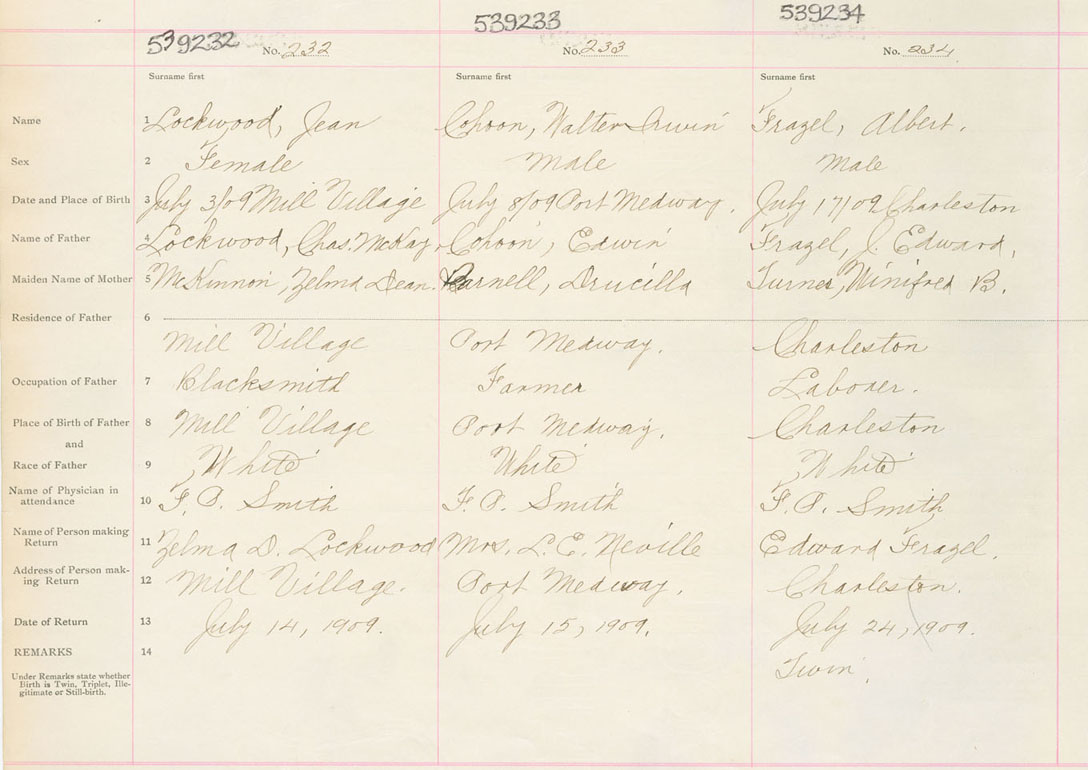 539232 539233 539234
No. 232 No. 233 No. 234
Surname first Surname first Surname first
Name 1 Lockwood, Jean Cohoon, Walter Irwin Frazel, Albert.
Sex 2 Female Male Male
Date and Place of Birth 3 July 3/09 Mill Village July 8/09 Port Medway. July 17/09 Charleston
Name of Father 4 Lockwood, Chas. McKay. Cohoon, Edwin Frazel, J. Edward,
Maiden Name of Mother 5 McKinnon, Zelma Dean. Parnell, Drucilla Turner, Winifred B.
Residence of Father 6
Mill Village Port Medway. Charleston
Occupation of Father 7 Blacksmith Farmer Laborer.
Place of Birth of Father 8 Mill Village Port Medway. Charleston
and
Race of Father 9 White White White
Name of Physician in
attendance 10 F. P. Smith F. P. Smith F. P. Smith
Name of Person making
Return 11 Zelma D. Lockwood Mrs. L. E. Neville Edward Frazel.
Address of Person mak-
ing Return 12 Mill Village. Port Medway. Charleston.
Date of Return 13 July 14, 1909. July 15, 1909. July 24, 1909.
REMARKS 14
Twin.
Under Remarks state whether
Birth is Twin, Triplet, Ille-
gitimate or Still-birth.